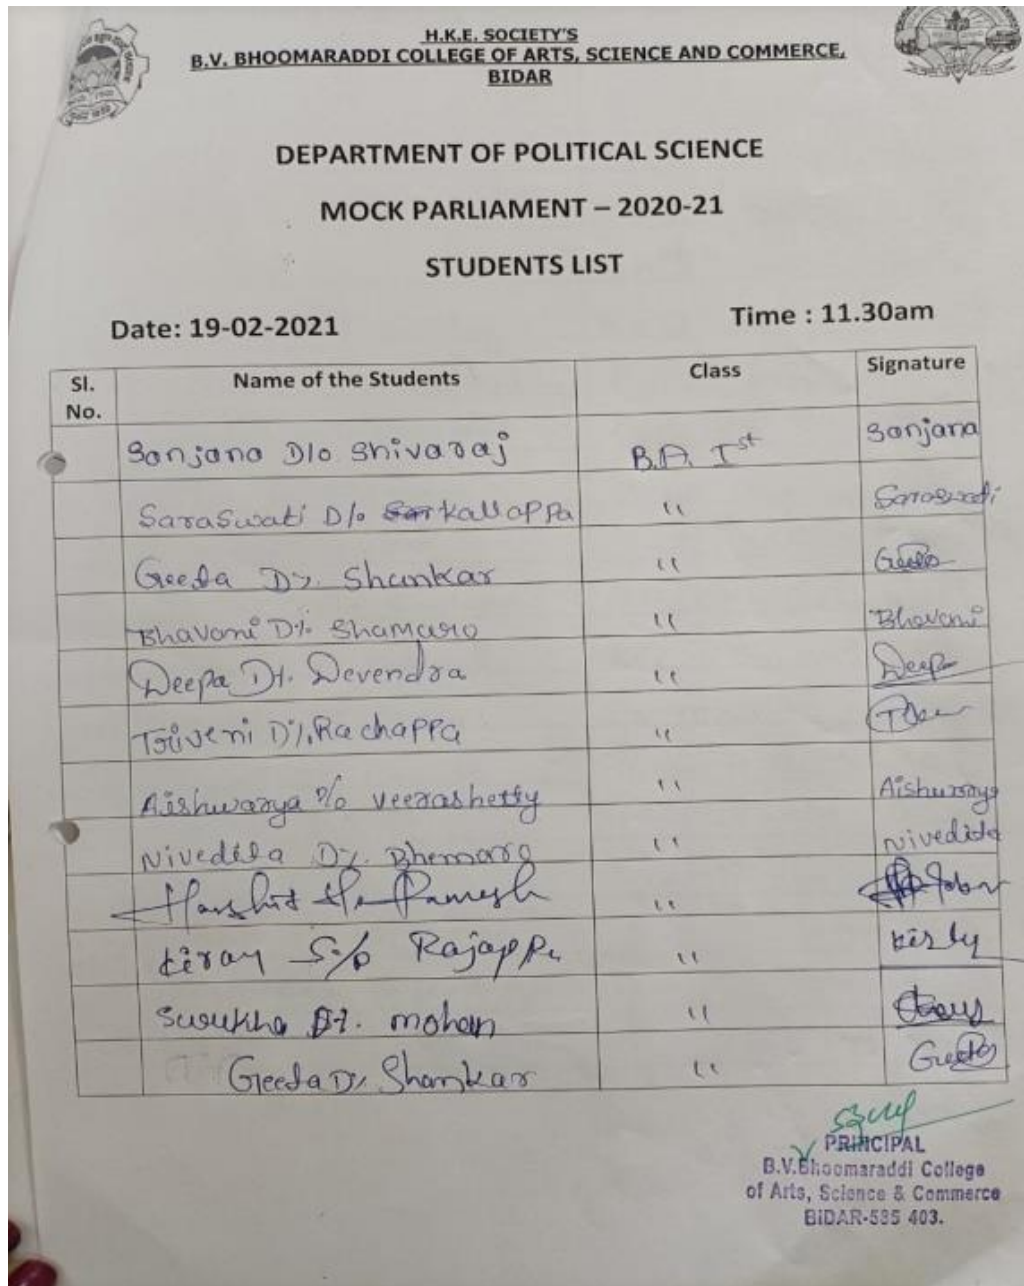 H.K.E. SOCIETY'S
B.V. BHOOMARADDI COLLEGE OF ARTS, SCIENCE AND COMMERCE,
BIDAR
DEPARTMENT OF POLITICAL SCIENCE
MOCK PARLIAMENT – 2020-21
STUDENTS LIST
Date: 19-02-2021 Time : 11.30am
Sl. No. Name of the Students Class Signature
Sanjana D/o Shivaraj B.A. Ist Sanjana
Saraswati D/o Kallappa " Saraswati
Geeta D/o Shankar " Geeta
Bhavani D/o Shamaro " Bhavani
Deepa D/o Devendra " Deepa
Triveni D/o Rachappa "
Aishwarya D/o Veerashetty " Aishwarya
Nivedita D/o Bhemaro " Nivedita
Harshit Ramesh "
Kiran S/o Rajappa "
Surukha D/o mohan "
Geeta D/o Shankar " Geeta
PRINCIPAL
B.V.Bhoomaraddi College
of Arts, Science & Commerce
BIDAR-585 403.